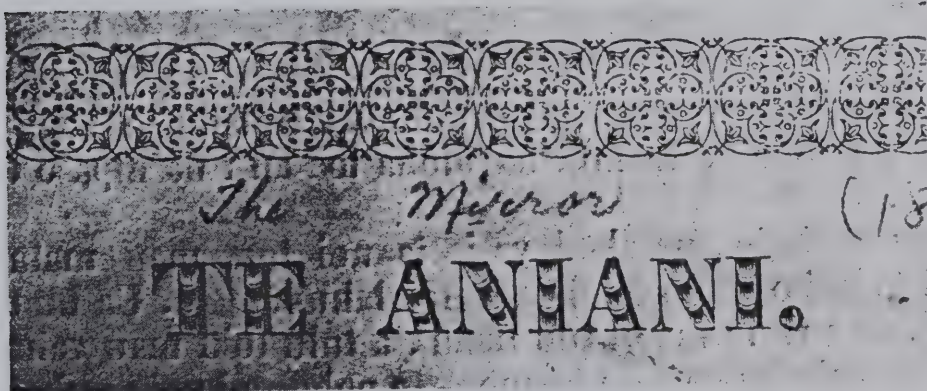 The Mirror (18
TE ANIANI.